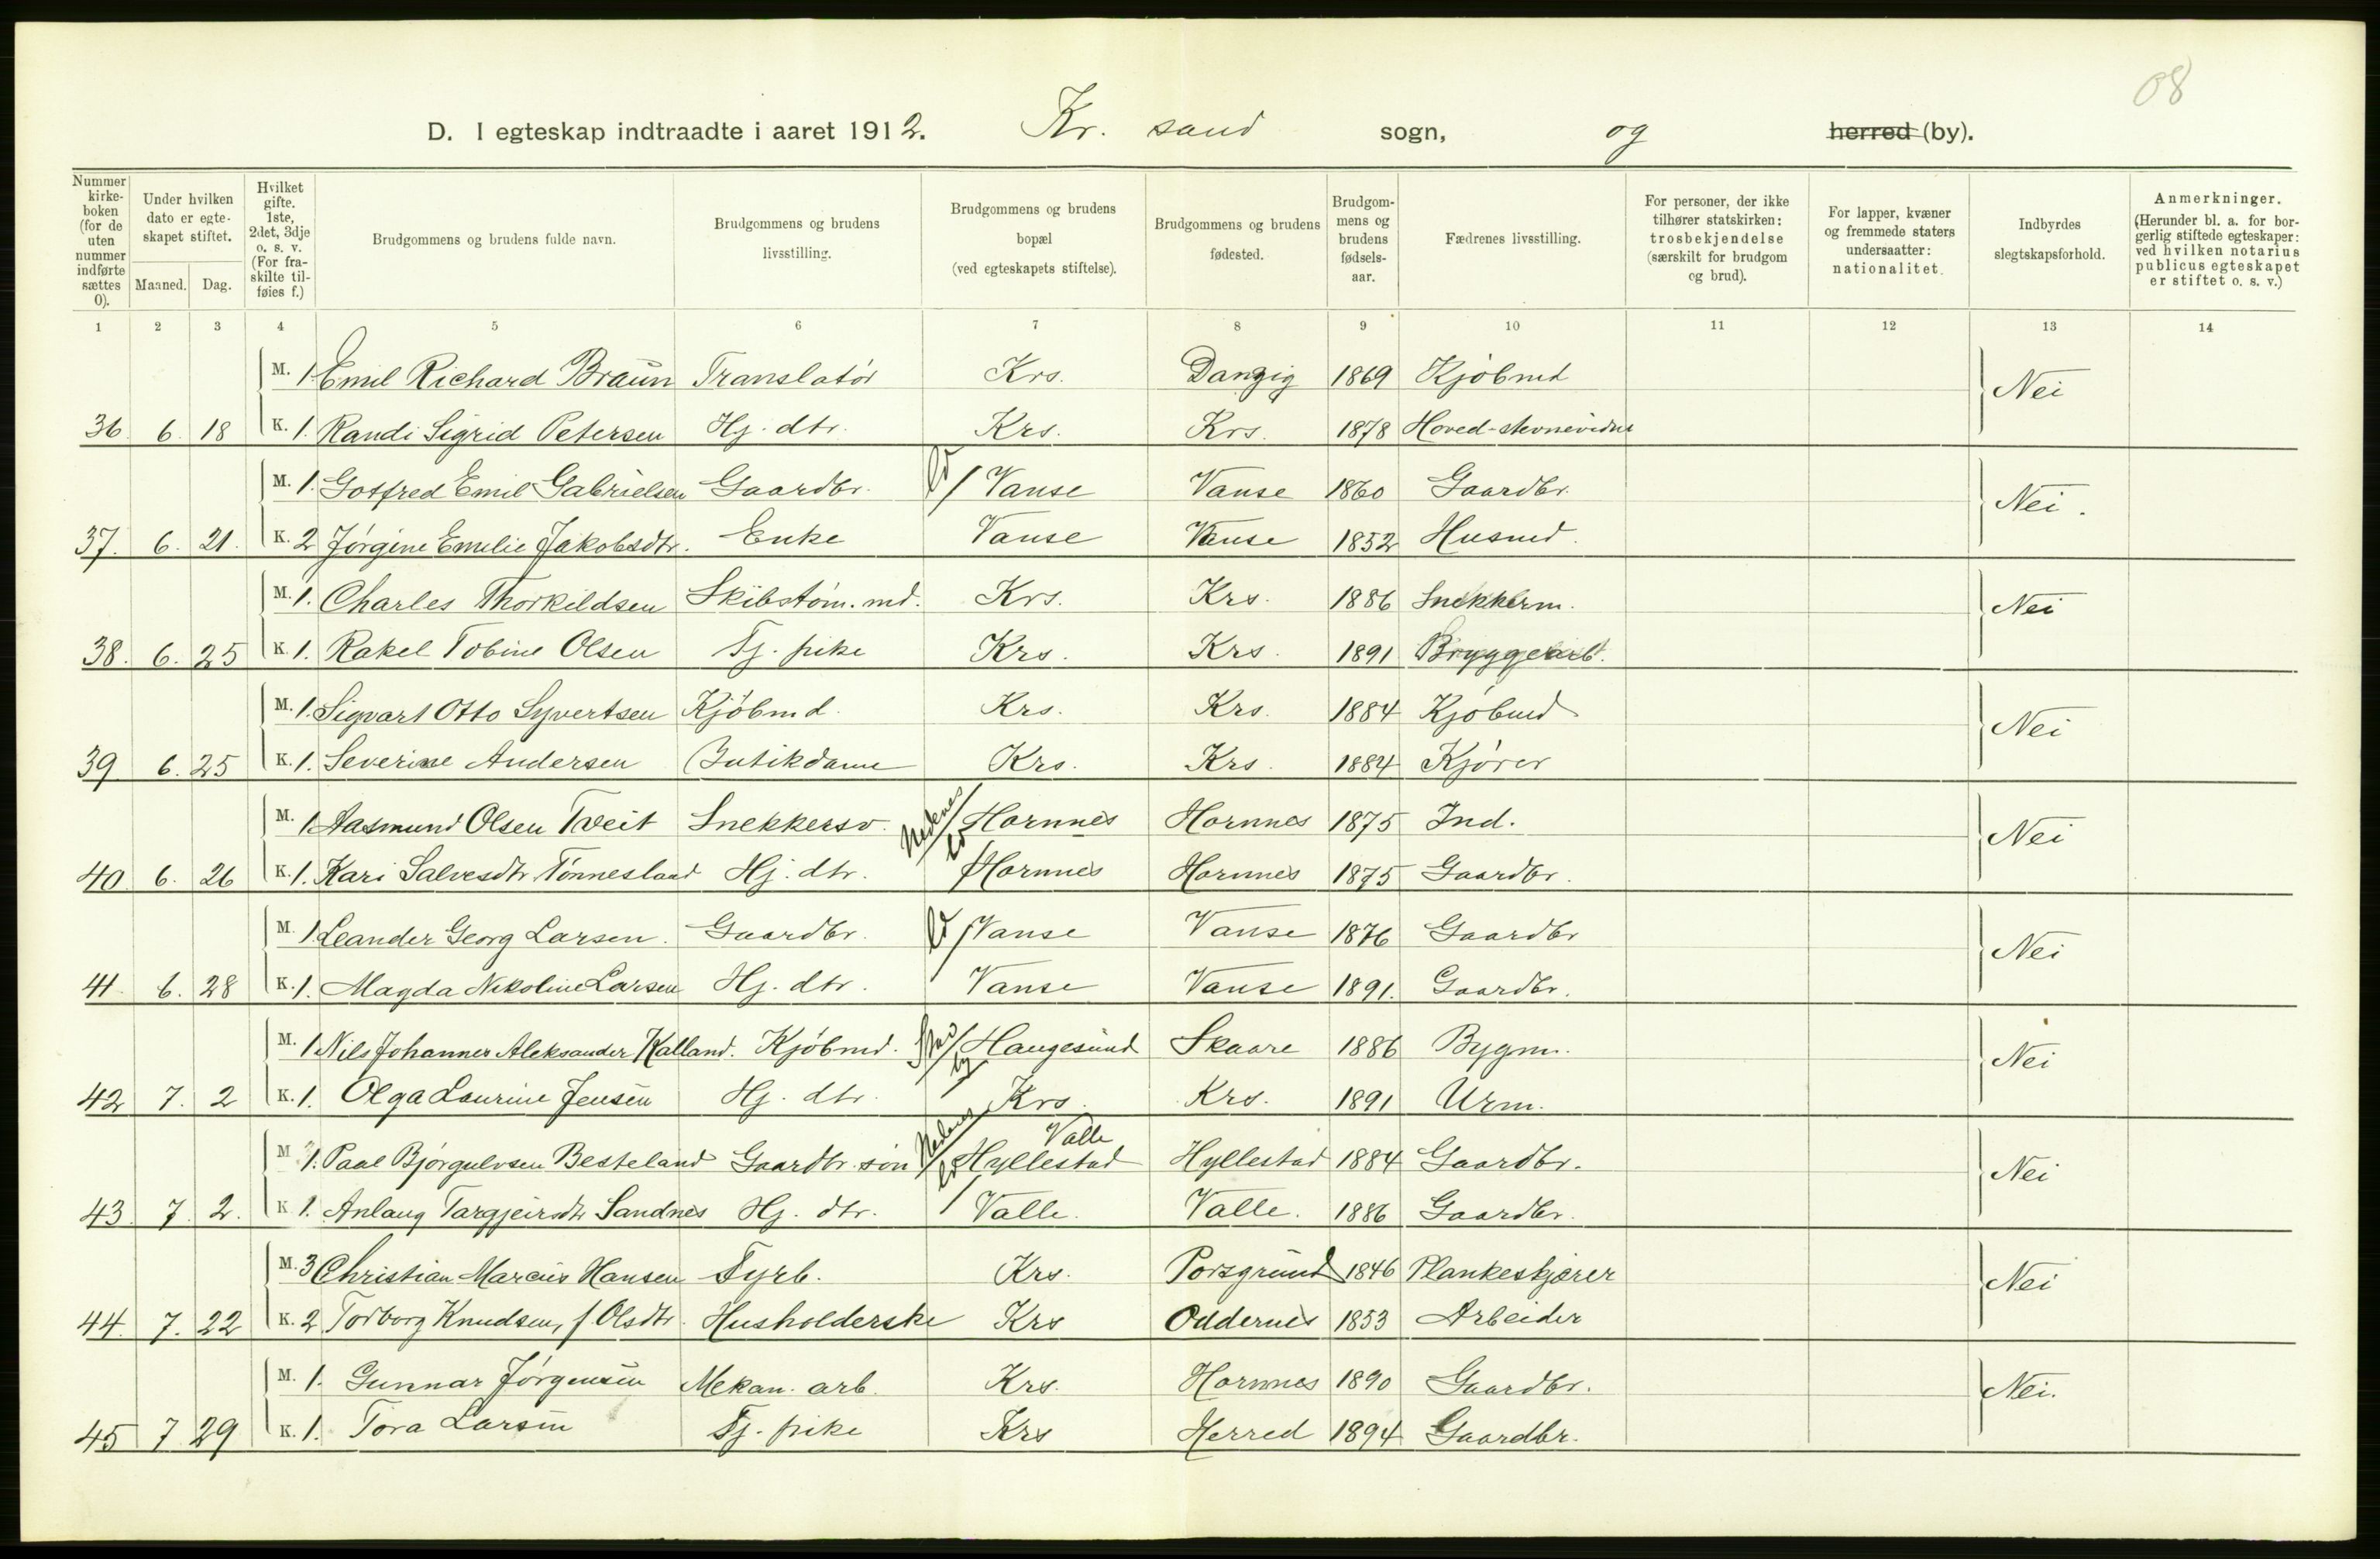 08
D. I egteskap indtraadte i aaret 1912. Kr. sand sogn, og herred (by).
Nummer kirke-boken (for de uten nummer indførte sættes 0). Under hvilken dato er egte-skapet stiftet. Maaned. Dag. Hvilket gifte. 1ste, 2det, 3dje o. s. v. (For fra-skilte til-føies f.) Brudgommens og brudens fulde navn. Brudgommens og brudens livsstilling. Brudgommens og brudens bopæl (ved egteskapets stiftelse). Brudgommens og brudens fødested. Brudgom-mens og brudens fødsels-aar. Fædrenes livsstilling. For personer, der ikke tilhører statskirken: trosbekjendelse (særskilt for brudgom og brud). For lapper, kvæner og fremmede staters undersaatter: nationalitet. Indbyrdes slegtskapsforhold. Anmerkninger. (Herunder bl. a. for bor-gerlig stiftede egteskaper: ved hvilken notarius publicus egteskapet er stiftet o. s. v.)
1 2 3 4 5 6 7 8 9 10 11 12 13 14
M. 1 Emil Richard Braun Translatør Krs. Danzig 1869 Kjøbmd Nei
36 6. 18 K. 1. Randi Sigrid Petersen Hj. dtr. Krs. Krs. 1878 Hoved-stevnevidne
M. 1. Gotfred Emil Gabrielsen Gaardbr. Ld / Vanse Vanse 1860 Gaardbr. Nei.
37. 6. 21. K. 2 Jørgine Emilie Jakobsdtr. Enke Vanse Vanse 1852 Husmd.
M. 1. Charles Thorkildsen Skibstøm. md. Krs. Krs. 1886 Snekkerm. Nei
38. 6. 25 K. 1. Rakel Tobine Olsen Tj. pike Krs. Krs. 1891 Bryggearb.
M. 1. Sigvart Otto Syvertsen Kjøbmd. Krs. Krs. 1884 Kjøbmd Nei
39 6. 25 K. 1. Severine Andersen Butikdame Krs. Krs. 1884 Kjører
M. 1 Aasmund Olsen Tveit Snekkersv. Nedenes Ld / Hornnes Hornnes 1875 Ind. Nei
40 6. 26 K. 1. Kari Salvesdtr. Tønnesland Hj. dtr. Hornnes Hornnes 1875 Gaardbr.
M. 1 Leander Georg Larsen. Gaardbr. Ld / Vanse Vanse 1876 Gaardbr Nei
41 6. 28 K. 1. Magda Nikoline Larsen Hj. dtr. Vanse Vanse 1891. Gaardbr.
M. 1 Nils Johannes Aleksander Kalland. Kjøbmd. by / Haugesund Skaare 1886 Bygm. Nei
42 7. 2 K. 1. Olga Laurine Jensen Hj. dtr. Krs. Krs. 1891 Urm.
Valle
M 1. Paal Bjørgulvsen Besteland Gaardbr. søn / Hyllestad Hyllestad 1884 Gaardbr. Nei
43. 7. 2. K 1. Anlaug Targjeirsdtr Sandnes Hj. dtr. Valle. Valle. 1886 Gaardbr.
M. 3 Christian Marcus Hansen Fyrb. Krs. Porsgrund 1846 Plankeskjærer Nei
44. 7. 22 K. 2 Torborg Knudsen, f Olsdtr. Husholderske Krs Oddernes 1853 Arbeider
M. 1. Gunnar Jørgensen Mekan. arb. Krs. Hornnes 1890 Gaardbr. Nei.
45 7 29 K. 1. Tora Larsen Tj. pike Krs Herred 1894 Gaardbr.